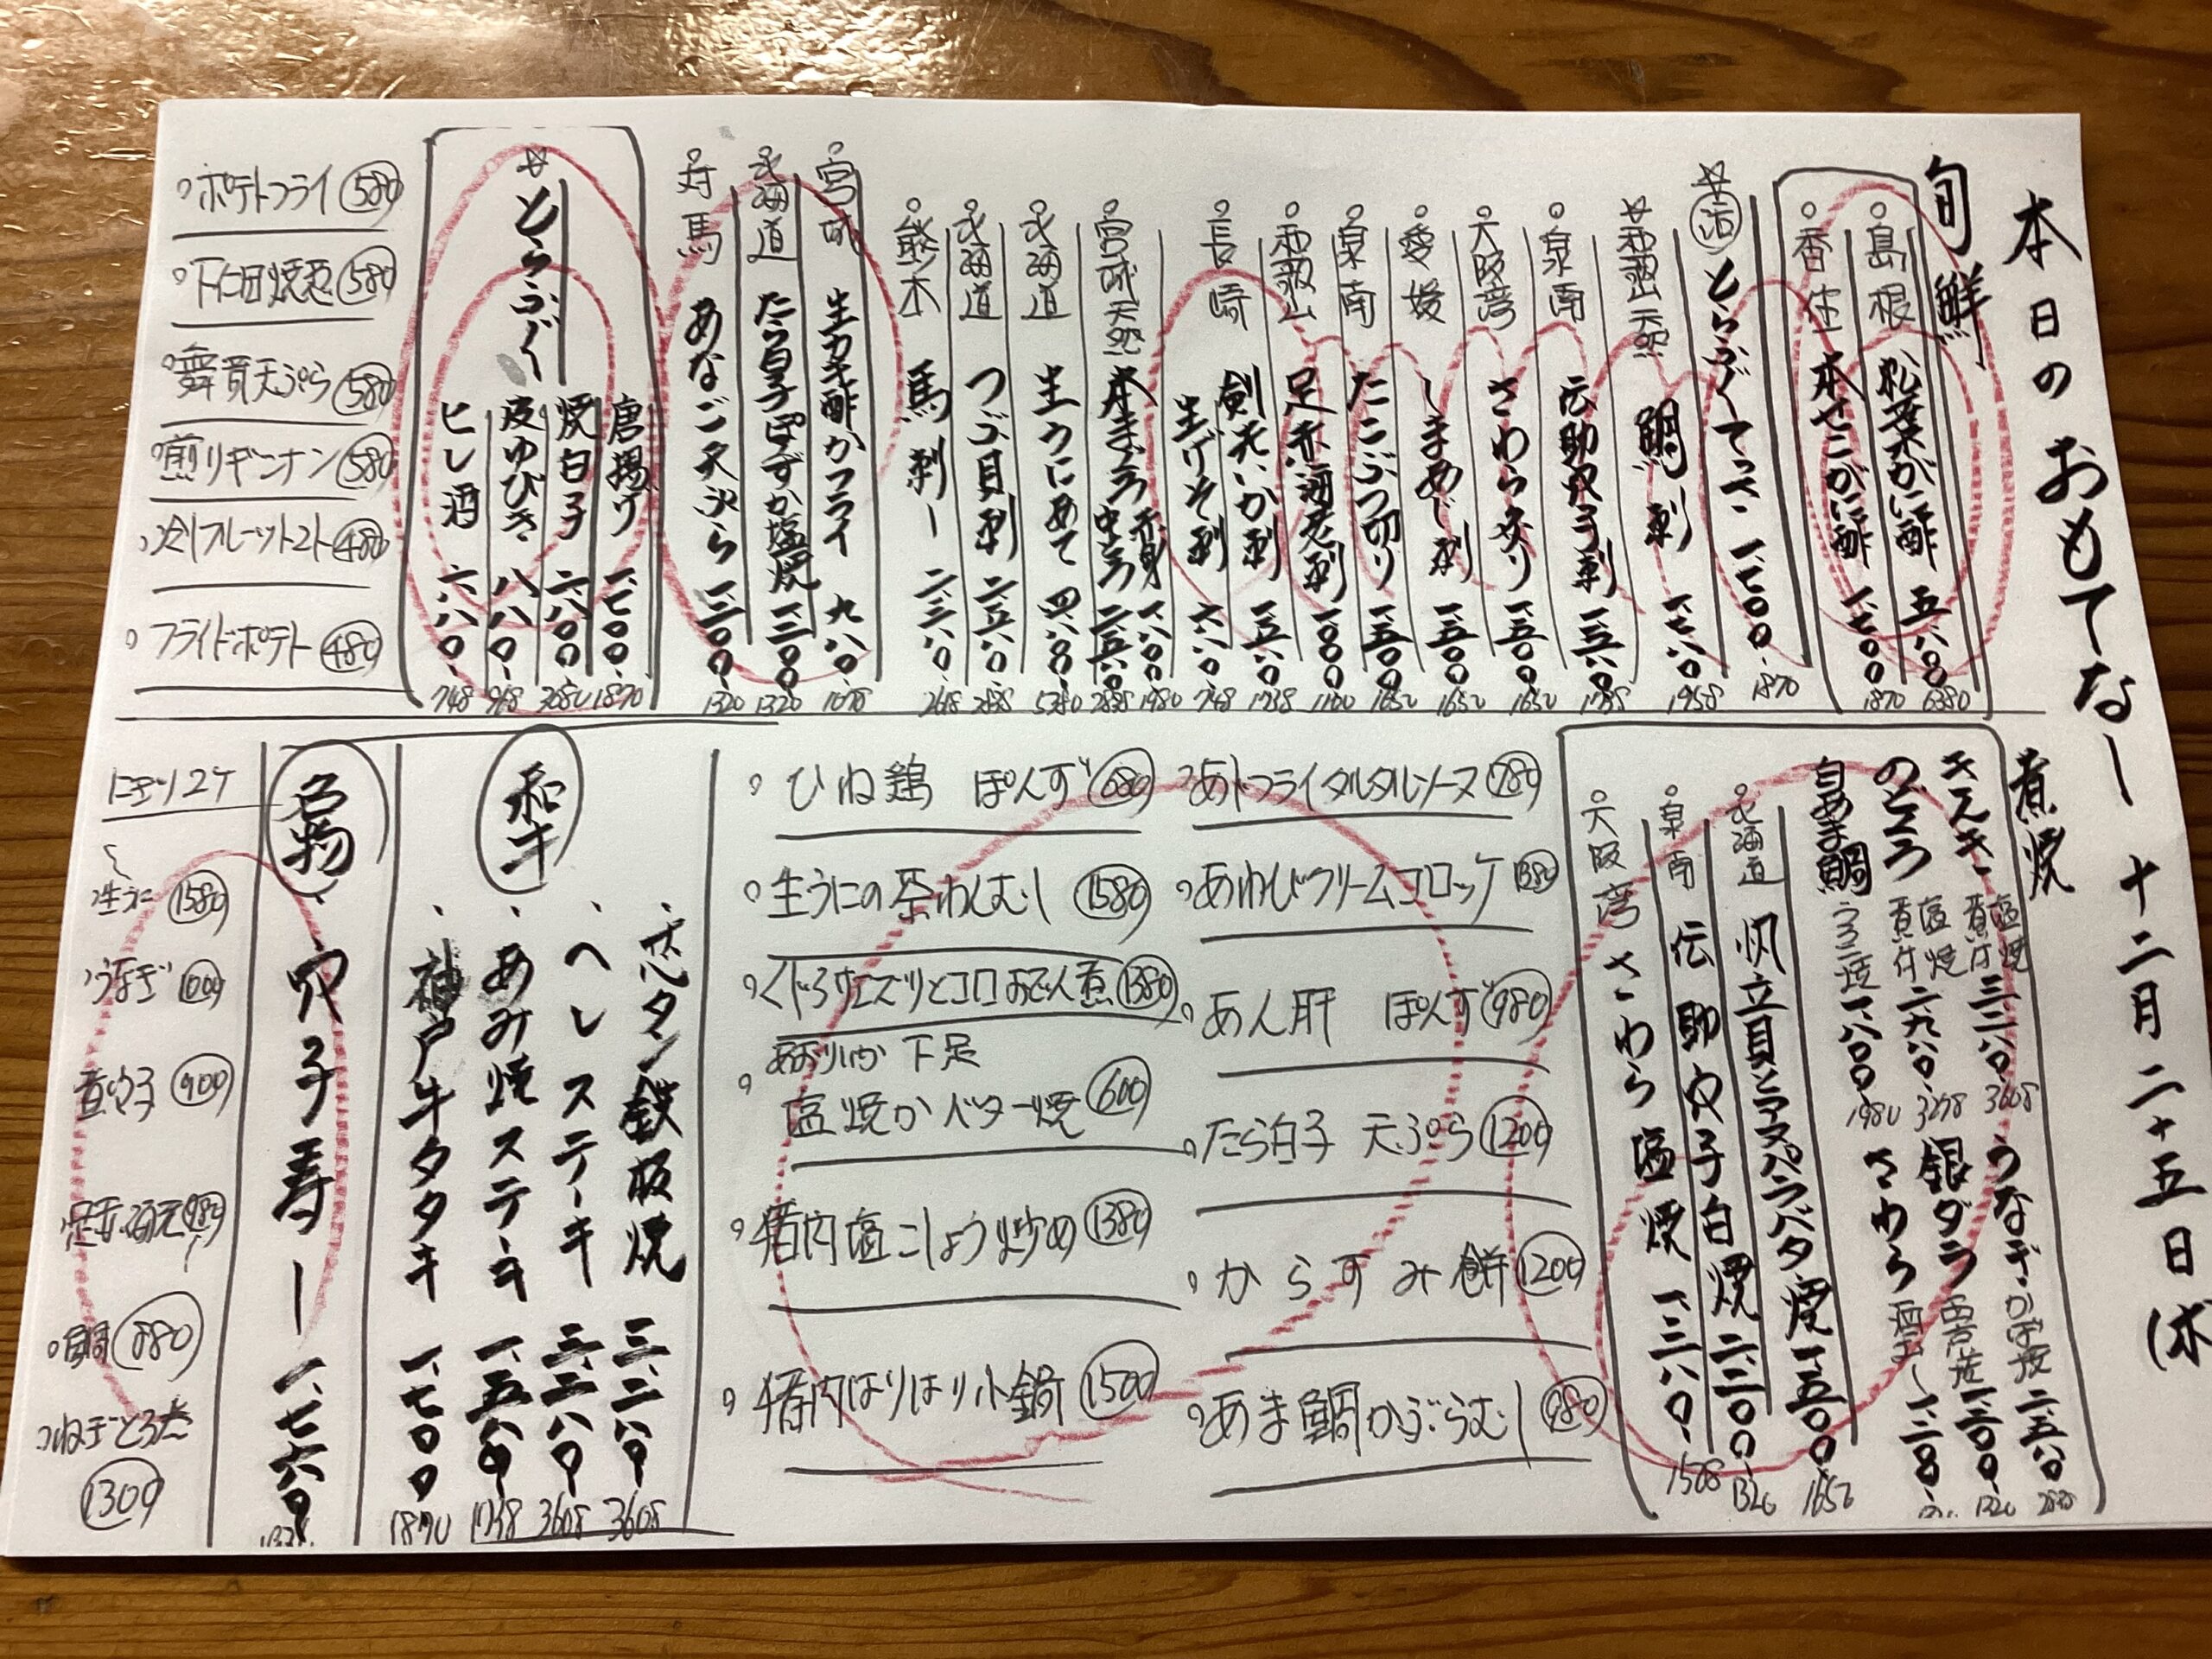 本日のおもてなし 十二月二十五日ば(木
旬鮮
島根 松葉がに酢 五、八〇〇 6380
香住 本せこがに酢 一、七〇〇 1870
☆活 とらふぐてっさ 一、七〇〇 1870
☆和歌山天然 鯛刺 一、七八〇 1958
泉南 伝助穴子刺 一、五八〇 1738
大阪湾 さわら炙り 一、五〇〇 1650
愛媛 しまあじ刺 一、五〇〇 1650
泉南 たこぶつ切り 一、五〇〇 1650
和歌山 足赤海老刺 一、〇〇〇 1100
長崎 剣先いか刺 一、五八〇 1738
生げそ刺 六八〇 748
宮城天然 本まぐろ 赤身 一、八〇〇 1980
中とろ 二、五八〇 2838
北海道 生うにあて 四、八〇〇
北海道 つぶ貝刺 二、五八〇 2838
熊本 馬刺し 二、三八〇 2618
宮城 生カキ酢かフライ 九八〇 1078
北海道 たら白子ぽんずか塩焼 一、二〇〇 1320
対馬 あなご天ぷら 一、二〇〇 1320
☆とらふぐ
唐揚げ 一、七〇〇 1870
焼白子 二、八〇〇 3080
皮ゆびき 八八〇 968
ヒレ酒 六八〇 748
ポテトフライ 580
下仁田焼葱 580
舞茸天ぷら 580
煎りギンナン 580
冷しフルーツトマト 480
フライドポテト 480
煮焼
きんき 塩焼 煮付 三、二八〇 3608
のどぐろ 塩焼 煮付 二、九八〇 3278
白あま鯛 うろこ焼 一、八〇〇 1980
うなぎ かば焼 二、五八〇 2838
銀ダラ 西京焼 一、二〇〇 1320
さわら 酒蒸し
北海道 帆立貝とアスパラバタ焼 一、五〇〇 1650
泉南 伝助穴子白焼 一、二〇〇 1320
大阪湾 さわら塩焼 一、三八〇 1508
あじフライタルタルソース 780
あわびクリームコロッケ 1380
あん肝 ぽんず 980
たら白子 天ぷら 1200
からすみ餅 1200
あま鯛かぶらむし 980
ひね鶏 ぽんず 680
生うにの茶わんむし 1580
くじらサエズリとコロおでん煮 1380
あおりいか 下足
塩焼かバター焼 600
猪肉塩こしょう炒め 1380
猪肉はりはり小鍋 1500
和牛
芯タン鉄板焼 三、二八〇 3608
ヘレステーキ 三、二八〇 3608
あみ焼ステーキ 一、五八〇 1738
神戸牛タタキ 一、七〇〇 1870
名物
穴子寿し
にぎり2ケ
生うに 1580
うなぎ 1000
煮穴子 900
足赤海老 980
鯛 880
ねぎとろ 1300